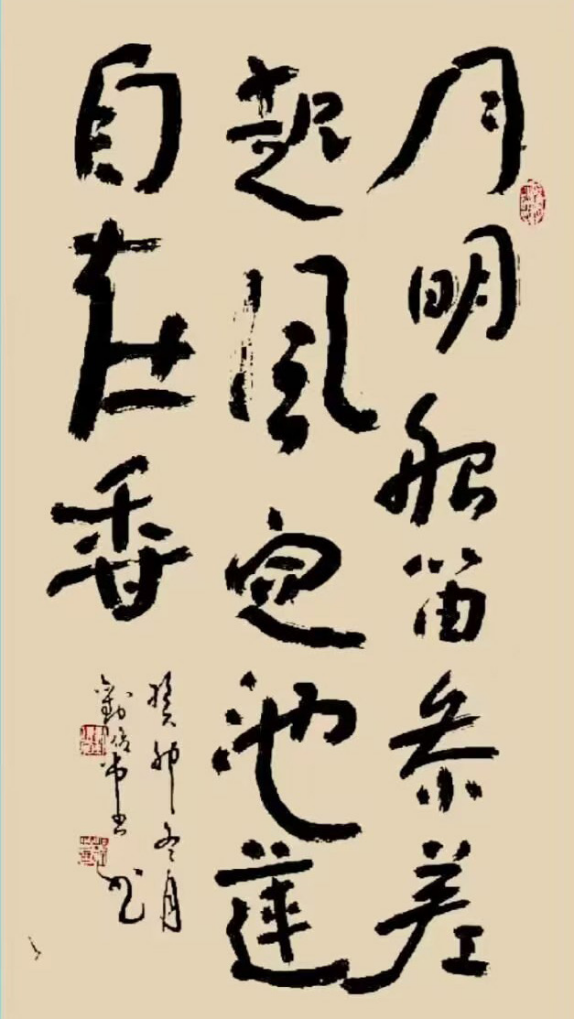 月明船笛参差
起风定池莲
自在香
癸卯冬月